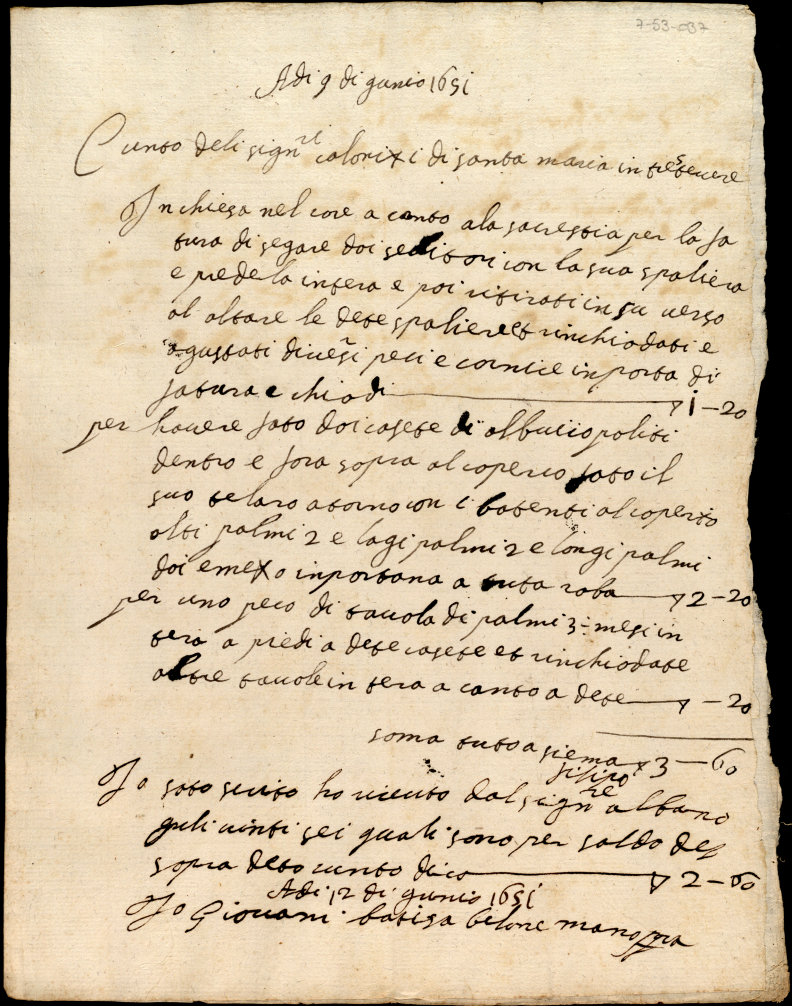 7-53-037
Adi 9 di gunio 1651
Cunto deli sign.ri calonixi di santa maria in trestevere
In chiesa nel core a canto ala sacrestia per la fa
tura di segare doi seditori con la sua spaliera
e predela in tera e poi ritirati in su verso
al altare le dete spaliere et rinchiodati e
agustati diversi peci e cornice inporta di
fatura e chiodi 1-20
per havere fato doi casete di albucio politi
dentro e fora sopra al coperco fato il
suo telaro atorno con i batenti al coperto
alti palmi 2 e lagi palmi 2 e longi palmi
doi e mexo inportana a tuta roba 2-20
per uno peco di tavola di palmi 3 mesi in
tera a piedi a dete casete et rinchiodate
altre tavole in tera a canto a dete -20
soma tuto asiema 3-60
Io soto scrito ho riceuto dal sign.re filipo albano
guli vinti sei quali sono per saldo del
sopra deto cunto dico 2-60
Adi 12 di gunio 1651
Io Giovani batisa belone mano ppa